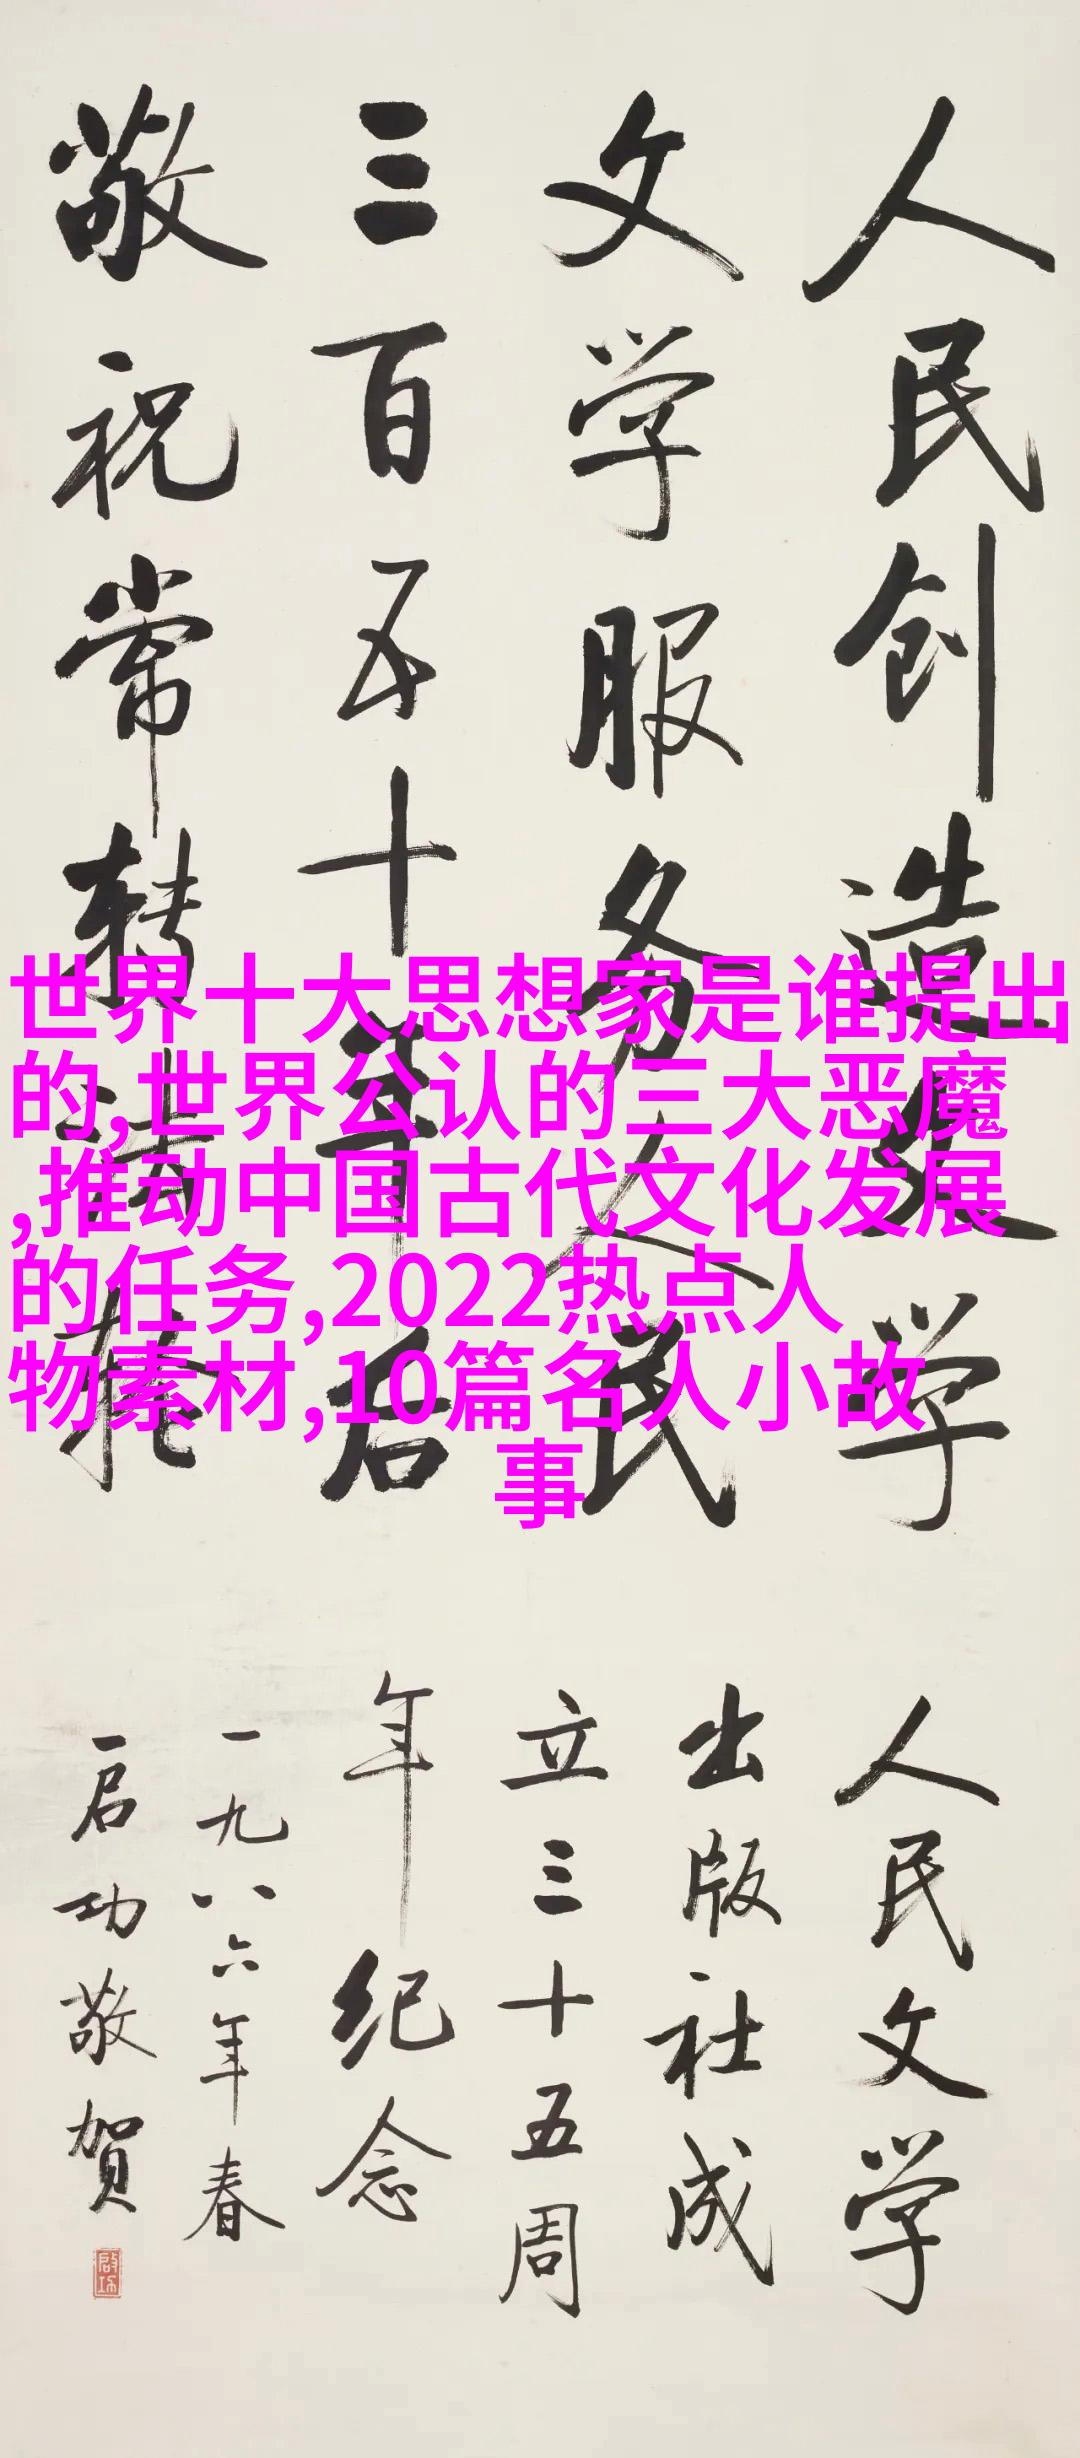 人民创造文学
文学服务人民
三百五十年后
敬祝常转法轮
人民文学
出版社成
立三十五周
年纪念
一九八六年春
启功敬贺
启功
世界十大思想家是谁提出
的,世界公认的三大恶魔
,推动中国古代文化发展
的任务,2022热点人
物素材,10篇名人小故
事